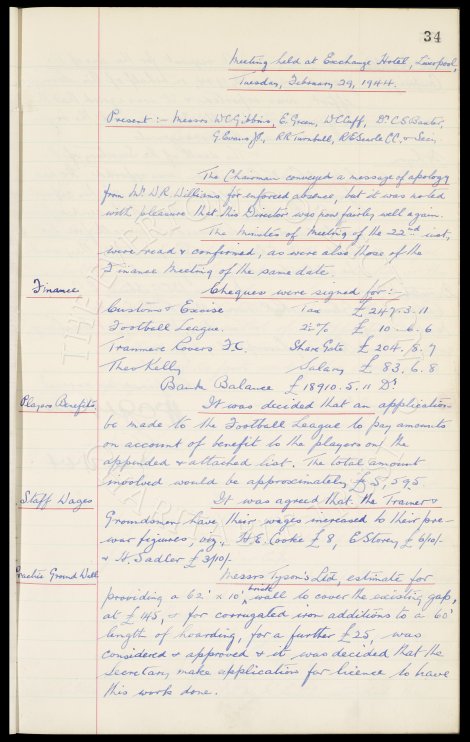 34
Meeting held at Exchange Hotel, Liverpool,
Tuesday, February 29, 1944.
Present :- Messrs W.C. Gibbins, E. Green, W.C. Cuff, Dr C.S. Baxter,
G. Evans J.P., R.R. Turnbull, R.E. Searle C.C. & Sec.
The Chairman conveyed a message of apology
from Mr W.R. Williams for enforced absence, but it was noted
with pleasure that this Director was now fairly well again.
The Minutes of Meeting of the 22nd inst,
were read & confirmed, as were also those of the
Finance Meeting of the same date.
Finance
Cheques were signed for :-
Customs & Excise Tax £ 247. 3. 11
Football League. 2½% £ 10. 6. 6
Tranmere Rovers F.C. Share Gate £ 204. 5. 7
Theo Kelly Salary £ 83. 6. 8
Bank Balance £ 18910. 5. 11 Dr
Players Benefits
It was decided that an application
be made to the Football League to pay amounts
on account of benefit to the players on the
appended & attached list. The total amount
involved would be approximately £5,595
Staff Wages
It was agreed that the Trainer &
Groundsmen have their wages increased to their pre-
war figures, viz, H.E. Cooke £8, E Storey £6/10/-
& H. Sadler £3/10/-
Practice Ground Wall
Messrs Tyson's Ltd, estimate for
providing a 62' x 10' brick wall to cover the existing gap,
at £145, & for corrugated iron additions to a 60'
length of hoarding, for a further £25, was
considered & approved & it was decided that the
Secretary make application for licence to have
this work done.